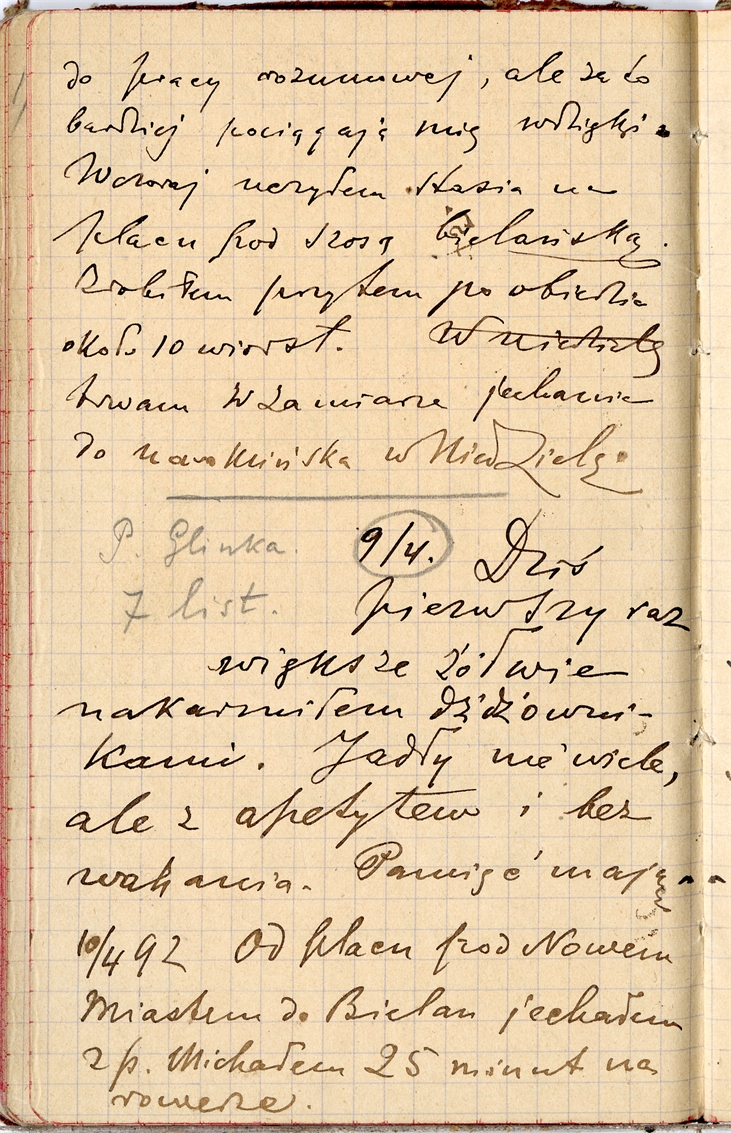 do pracy rozumowej, ale za to
bardziej pociągają mię wdzięki.
Wczoraj uczyłem Stasia na
placu pod szosą bielańską.
Zrobiłem przytem po obiedzie
około 10 wiorst. W niedzielę
trwam w zamiarze jechania
do nowomińska w Niedzielę.
P. Glinka.
7 list.
9/4. Dziś
pierwszy raz
większe żółwie
nakarmiłem dżdżowni-
kami. Jadły nie wiele,
ale z apetytem i bez
wahania. Pamięć mają
10/4 92 Od placu pod Nowem
Miastem do Bielan jechałem
z p. Michałem 25 minut na
rowerze.